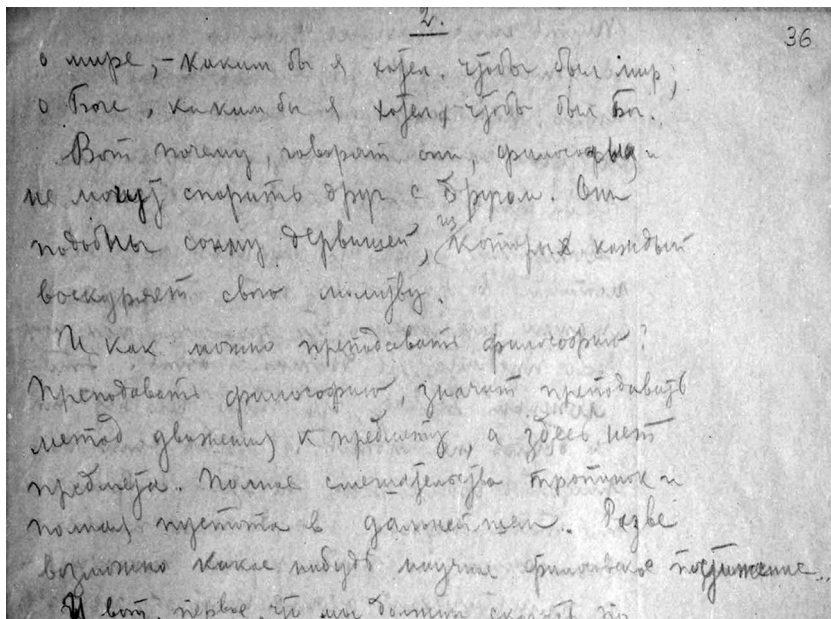 2.
36
о мире, – каким бы я хотел, чтобы был мир;
о Боге, каким бы я хотел, чтобы был Бог.
Вот почему, говорят они, философы и
не могут спорить друг с другом. Они
подобны сонму дервишей, из которых каждый
воскуряет свою молитву.
И как можно преподавать философию?
Преподавать философию, значит преподавать
метод движения к предмету, а здесь нет
предмета. Полное тропинок и
полная пустота в дальнейшем. Разве
возможно какое нибудь научное философское постижение..
И вот, первое, что мы должны сказать